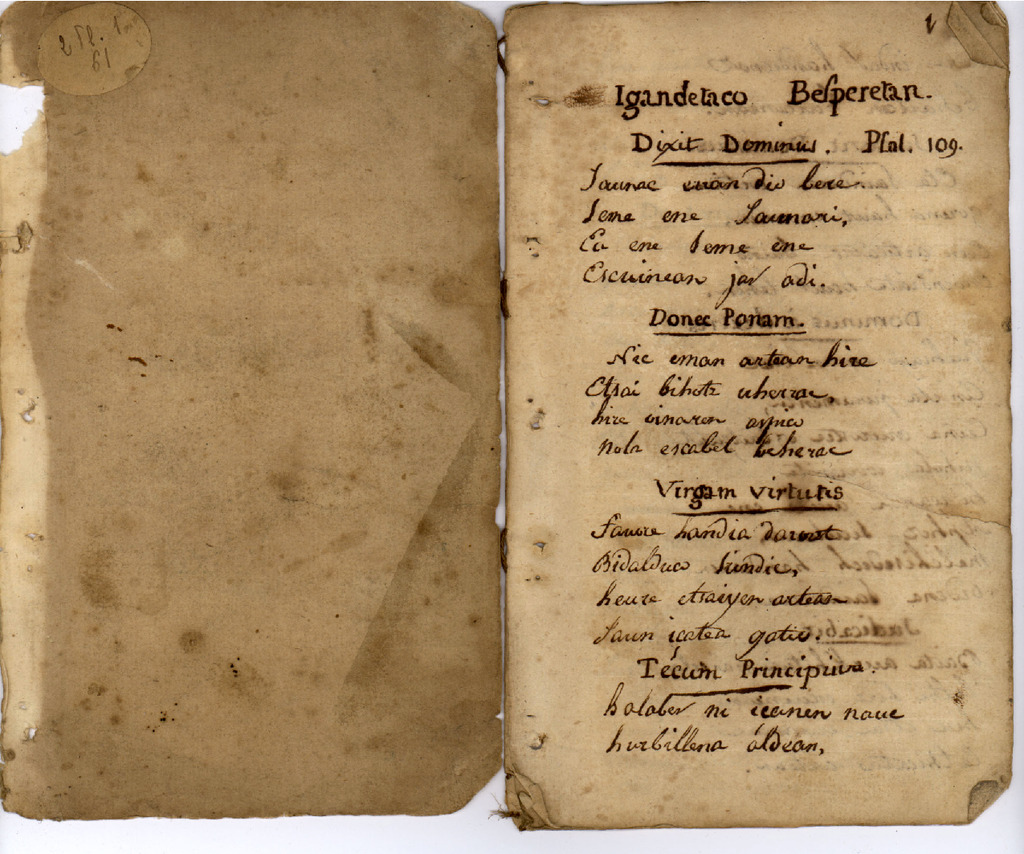 1
Igandetaco Besperetan.
Dixit Dominus. Psal. 109.
Jaunac erran dio bere
Seme ene Jaunari,
Ea ene Seme ene
Escuinean jar adi.
Donec Ponam.
Nic eman artean hire
Etsai bihotz uherrac,
hire oinaren azpico
nola escabel beherac
Virgam virtutis
Jaunc handia darot
Bidalduco Siondic,
heure etsaiyen artean
Jaun içatea gatic.
Técum Principium.
halaber ni içanen nauc
hurbillena áldean,